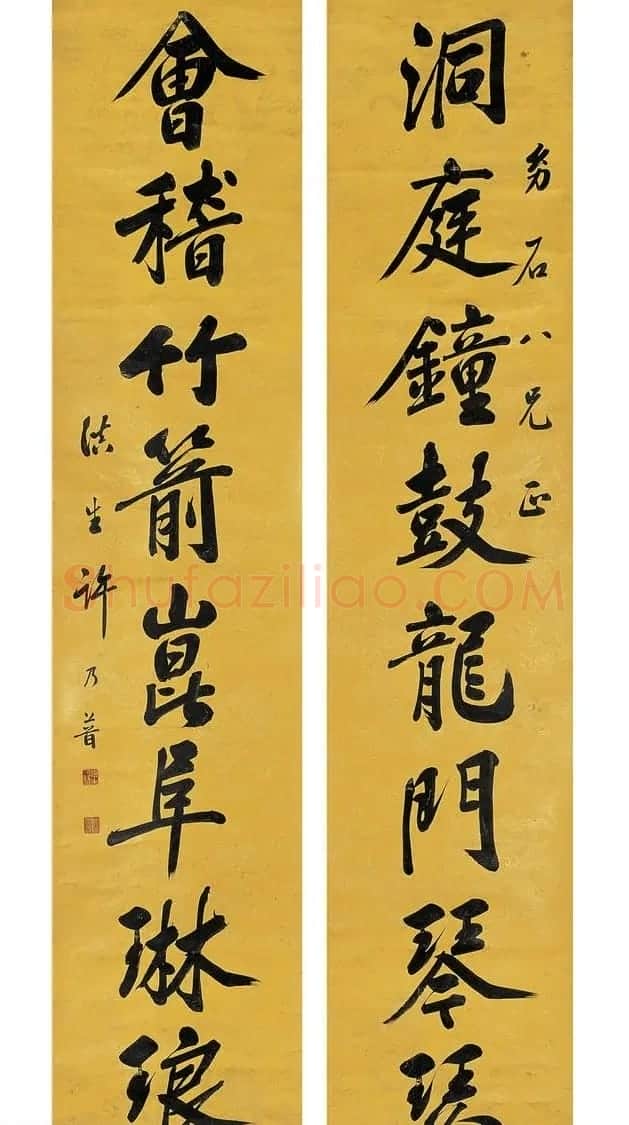 洞庭鐘鼓龍門琴瑟
石八兄正
會稽竹箭崑阜琳琅
滇生許乃普
Shufaziliao.COM